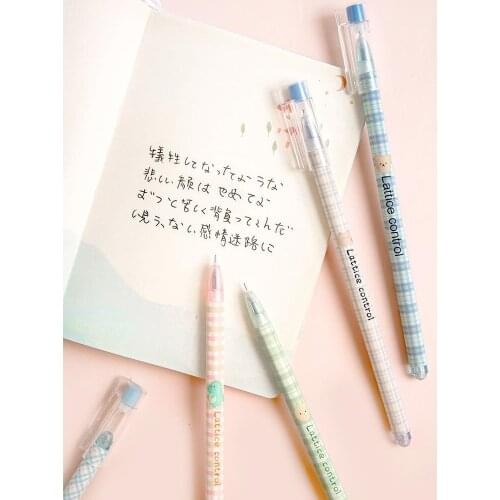 犠牲してなったような
悲しい顔はやめてよ
ずっと苦しく背負ってくんだ
Lattice control
Lattice control
Lattice control
Lattice control